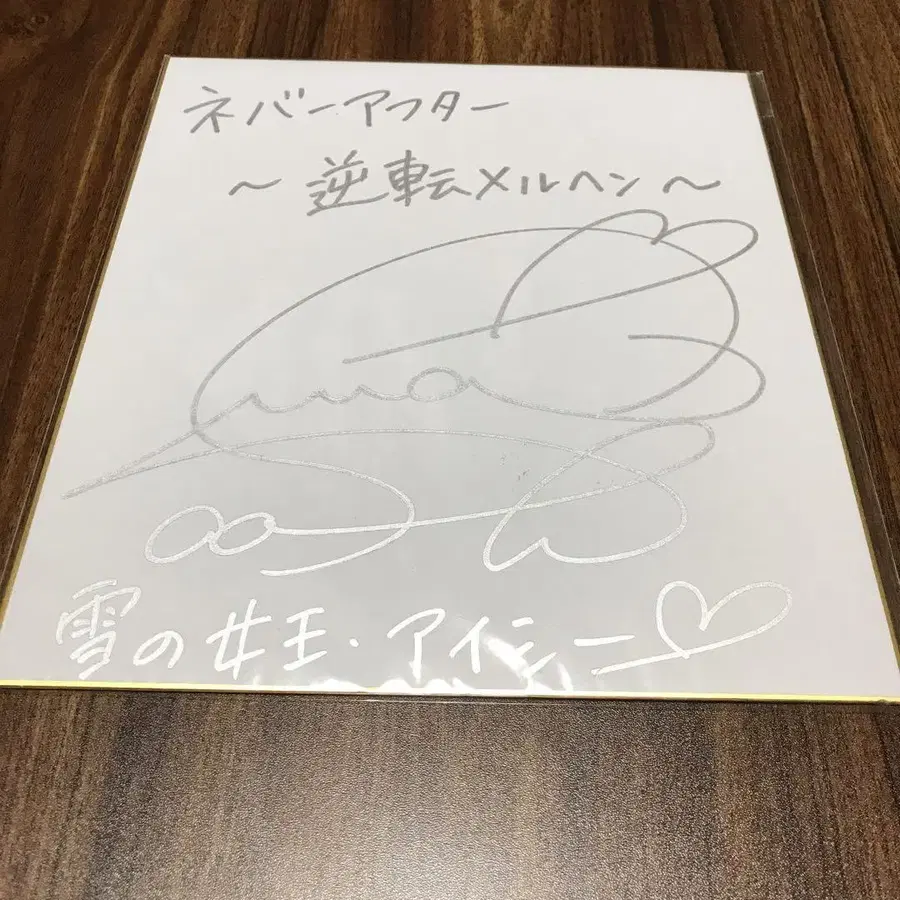 ネバーアフター
～逆転メルヘン～
雪の女王・アイシー♡